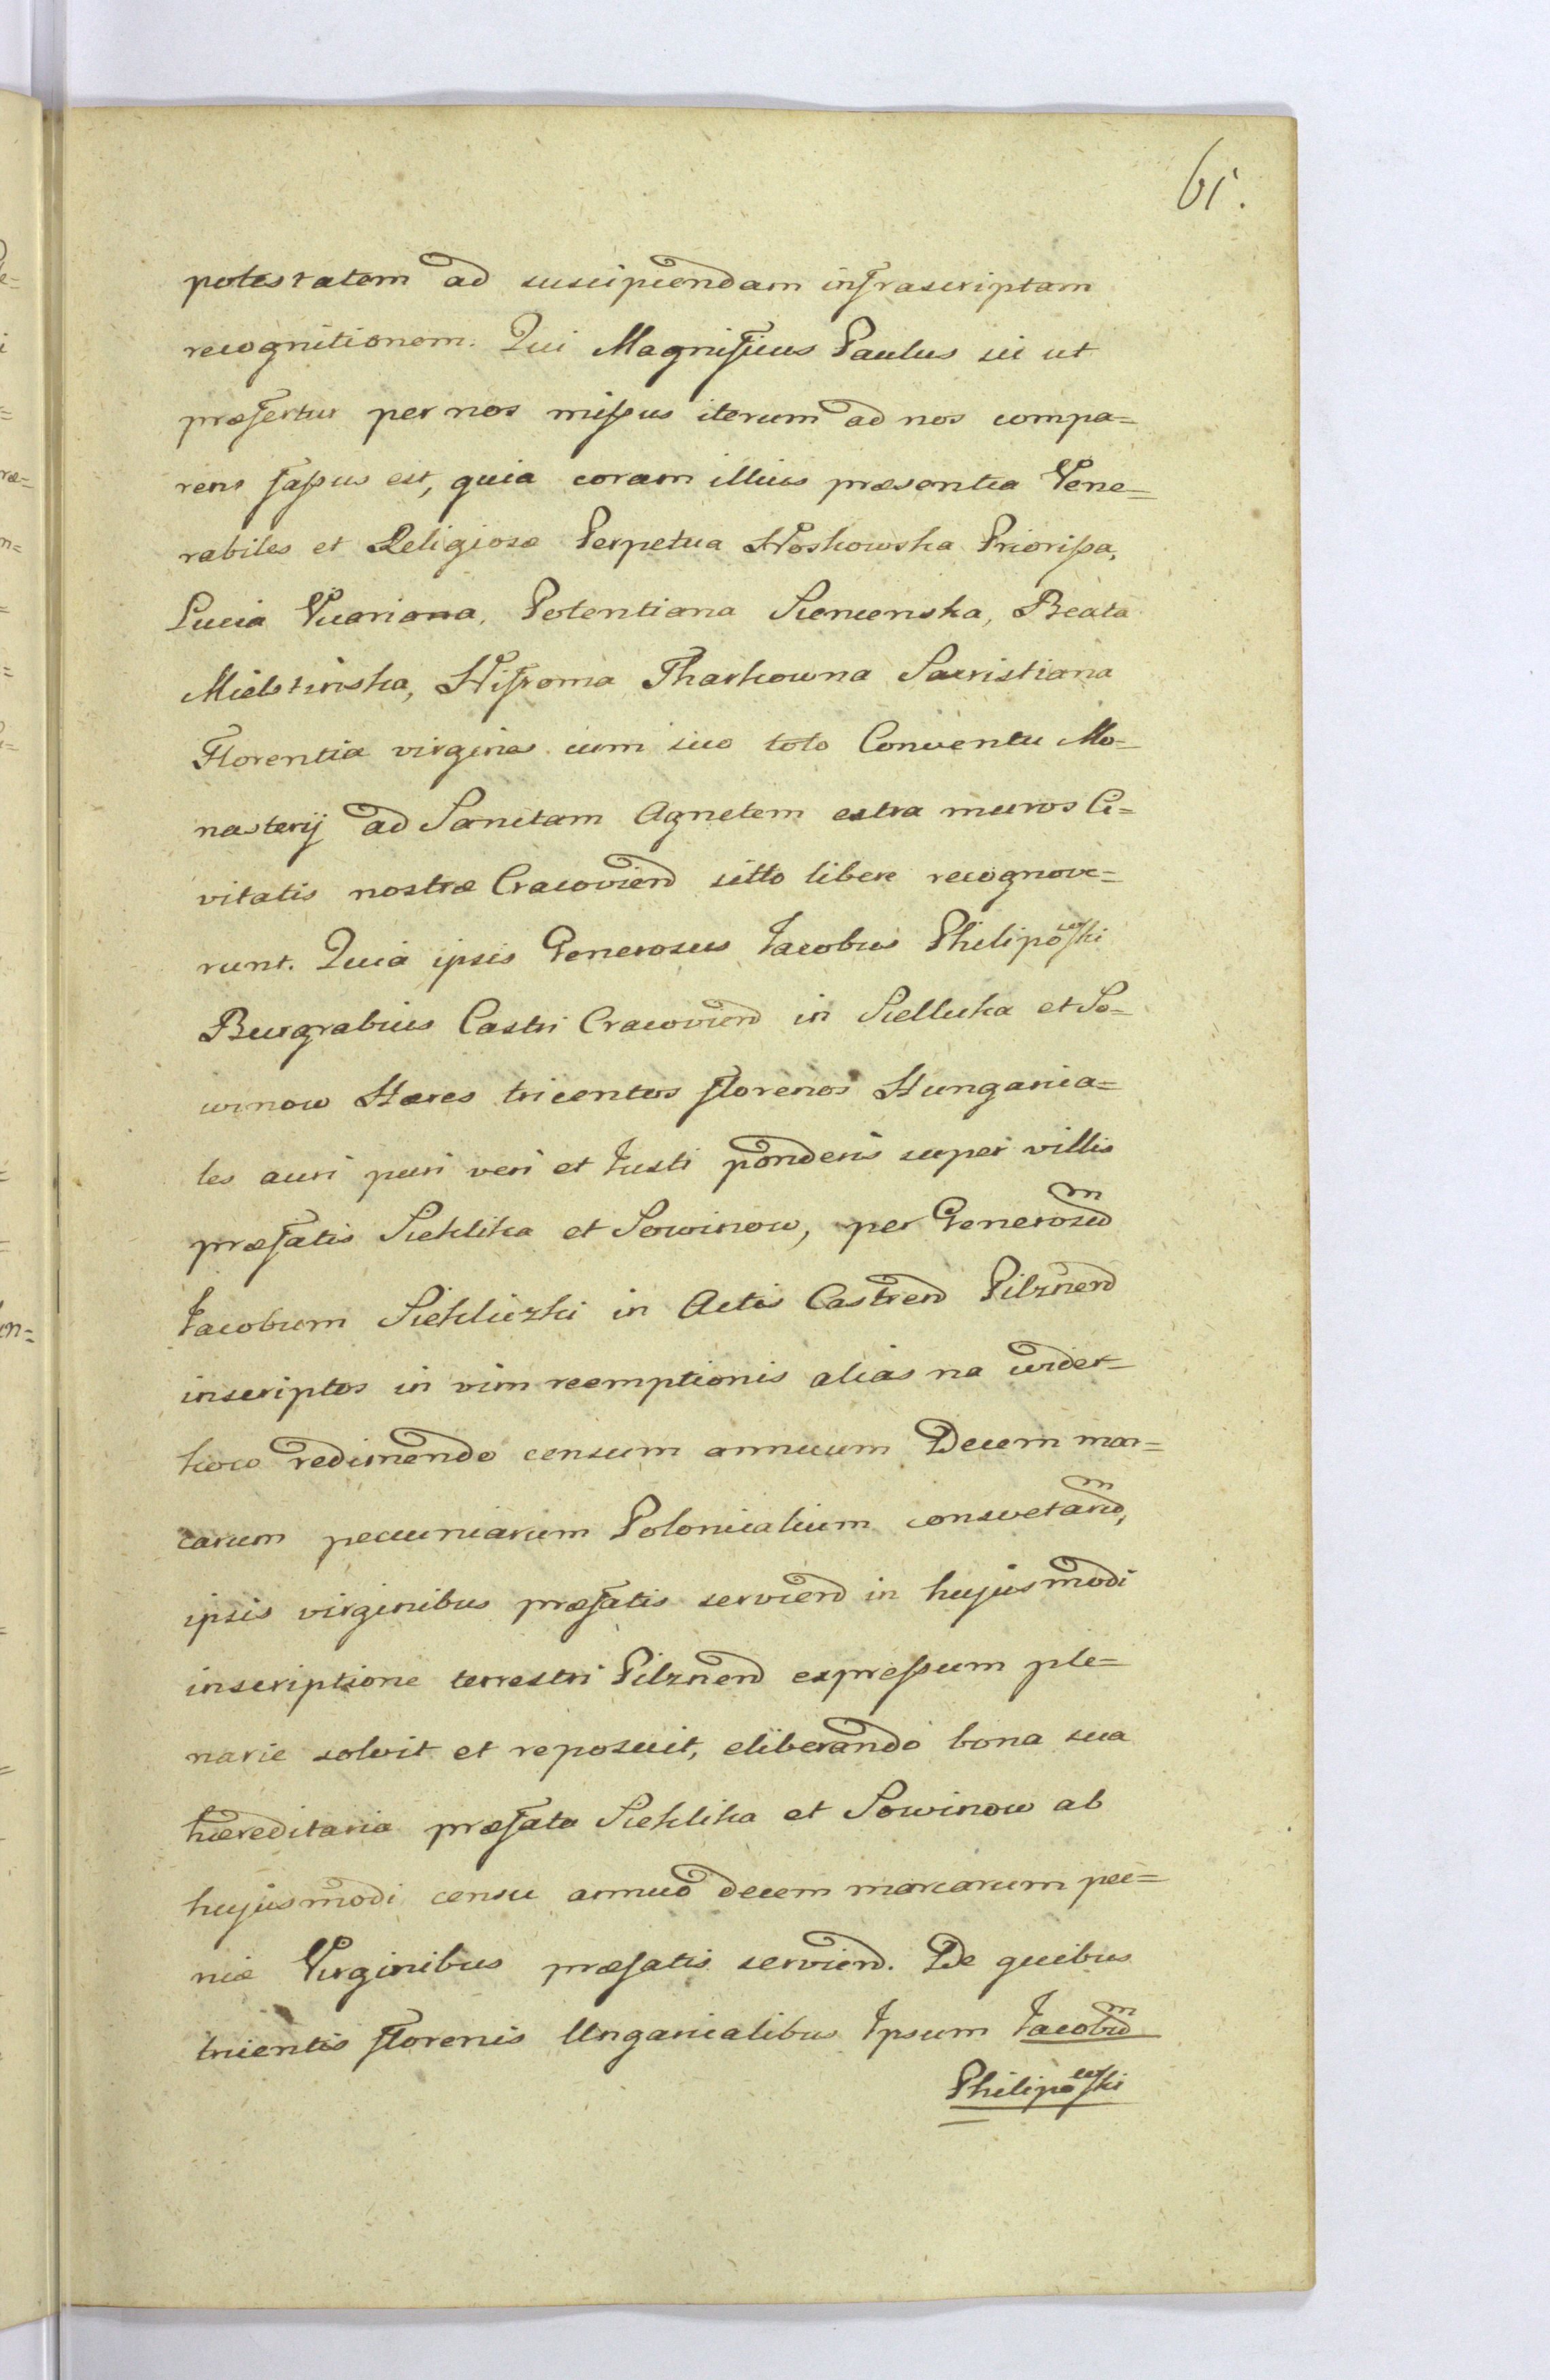 61.
potestatem ad suscipiendam infrascriptam
recognitionem. Qui Magnificus Paulus sic ut
præfertur per nos mißus iterum ad nos compa=
rens faßus est, quia coram illius præsentia Vene=
rabiles et Religiosæ Perpetua Woskowska Priorißa,
Lucia Vicariana, Potentiana Siemienska, Beata
Mielstinska, Tharkowna Sacristiana
Florentia virgines cum suo toto Conventu Mo=
nasterij ad Sanctam Agnetem extra muros Ci=
vitatis nostræ Cracovien sitto libere recognove=
runt. Quia ipsis Generosus Jacobus Philipowski
Burgrabius Castri Cracovien in Siellucka et So=
winow Hæres tricentos florenos Hungarica=
les auri puri veri et Justi ponderis super villis
præfatis Sieklika et Sowinow, per Generosum
Jacobum Siekliczki in Actis Castren Pilznen
inscriptos in vim reemptionis alias na wider=
kow redimendo censum annuum Decem mar=
carum pecuniarum Polonicalium consvetarum,
ipsis virginibus præfatis servien in hujusmodi
inscriptione terrestri Pilznen expreßum ple=
narie solvit et reposuit, eliberando bona sua
hæreditaria præfata Sieklika et Sowinow ab
hujusmodi censu annuo decem marcarum pec=
niæ Virginibus præfatis servien. De quibus
tricentis florenis Ungaricalibus Ipsum Jacobum
Philipowski